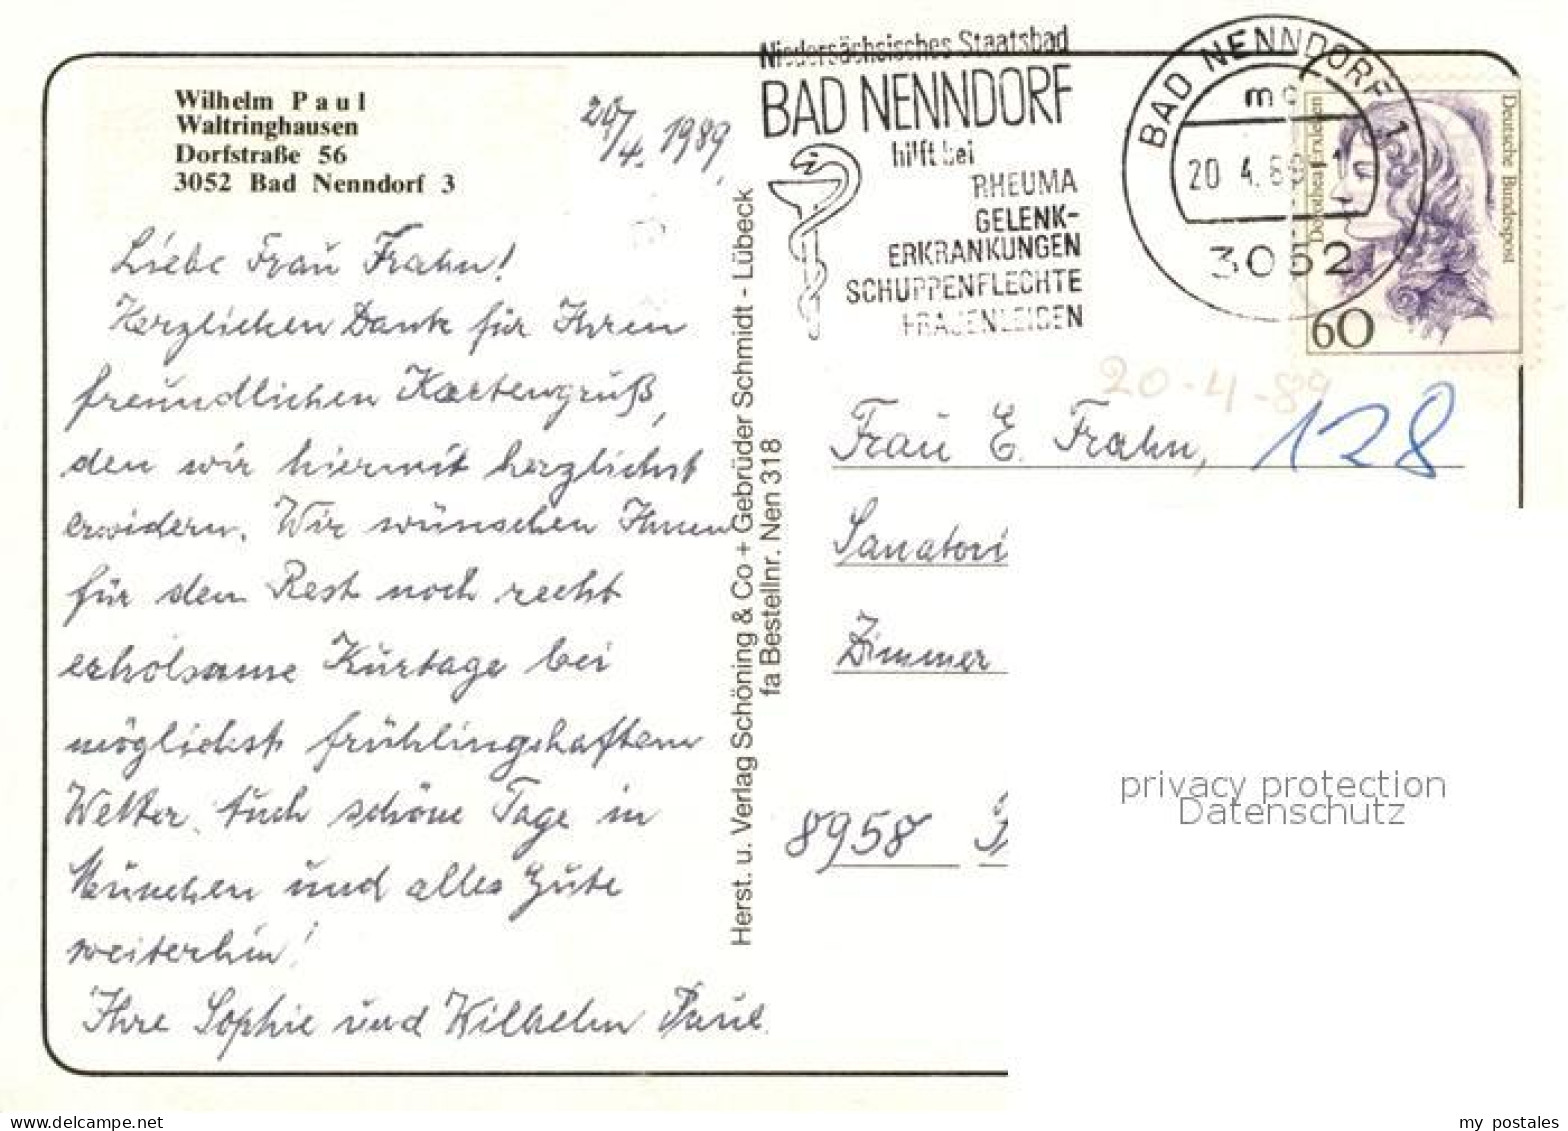 Wilhelm Paul
Waltringhausen
Dorfstraße 56
3052 Bad Nenndorf 3
20/4. 1989,
Liebe Frau Frahn!
Herzlichen Dank für Ihren
freundlichen Kartengruß,
den wir hiermit herzlichst
erwidern. Wir wünschen Ihnen
für den Rest noch recht
erholsame Kurtage bei
möglichst frühlingshaftem
Wetter. Auch schöne Tage in
München und alles Gute
weiterhin!
Ihre Sophie und Wilhelm Paul
Herst. u. Verlag Schöning & Co + Gebrüder Schmidt - Lübeck
fa Bestellnr. Nen 318
Niedersächsisches Staatsbad
BAD NENNDORF
hilft bei
RHEUMA
GELENK-
ERKRANKUNGEN
SCHUPPENFLECHTE
FRAUENLEIDEN
BAD NENNDORF 1
mc
20.4.89
3052
Dorothea Erxleben
Deutsche Bundespost
60
20-4-89
Frau E. Frahn, 128
Sanatori
Zimmer
8958
privacy protection
Datenschutz
my_postales